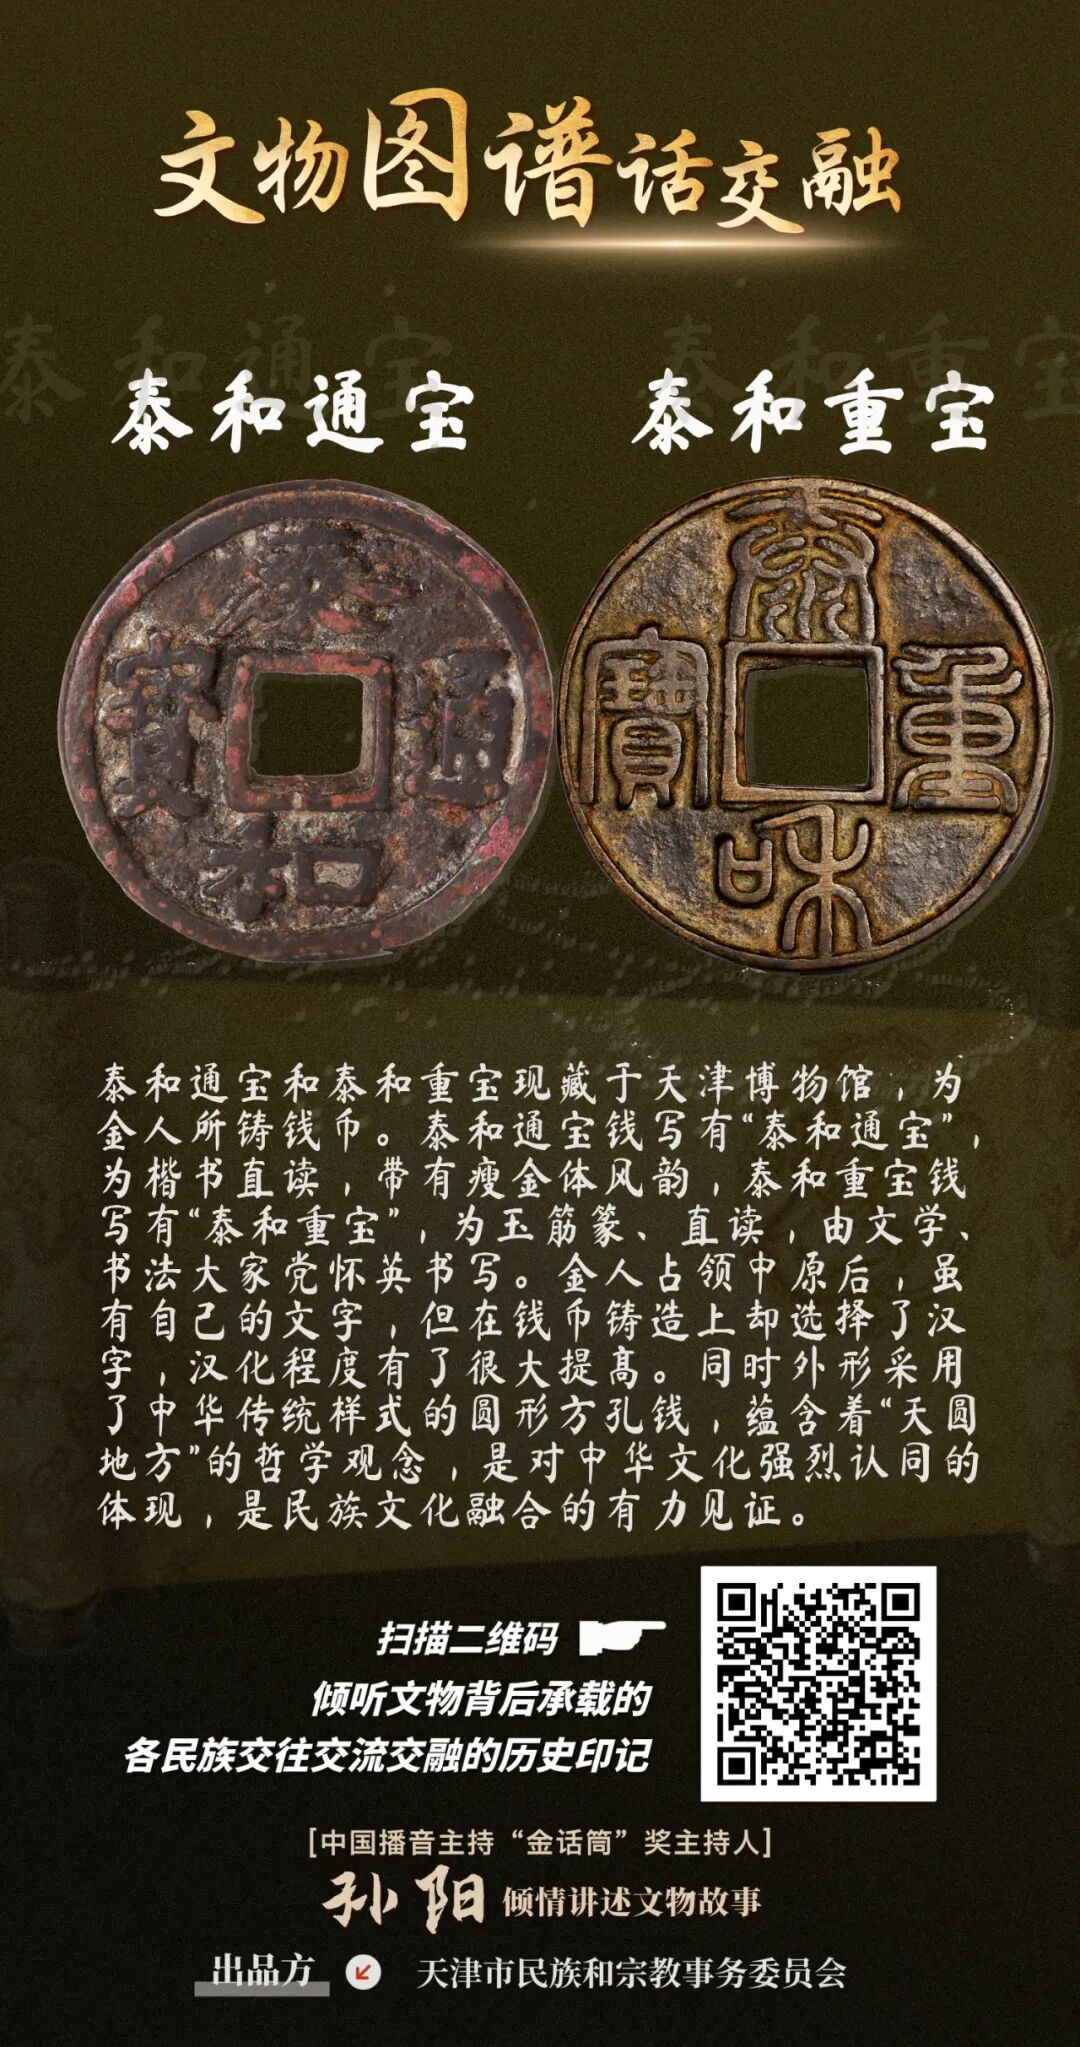 文物图谱话交融
泰和通宝
泰和重宝
泰和通寶
泰和重寶
泰和通宝和泰和重宝现藏于天津博物馆，为
金人所铸钱币。泰和通宝钱写有“泰和通宝”，
为楷书直读，带有瘦金体风韵，泰和重宝钱
写有“泰和重宝”，为玉筋篆、直读，由文学、
书法大家党怀英书写。金人占领中原后，虽
有自己的文字，但在钱币铸造上却选择了汉
字，汉化程度有了很大提高。同时外形采用
了中华传统样式的圆形方孔钱，蕴含着“天圆
地方”的哲学观念，是对中华文化强烈认同的
体现，是民族文化融合的有力见证。
扫描二维码
倾听文物背后承载的
各民族交往交流交融的历史印记
[中国播音主持“金话筒”奖主持人]
孙阳 倾情讲述文物故事
出品方 天津市民族和宗教事务委员会